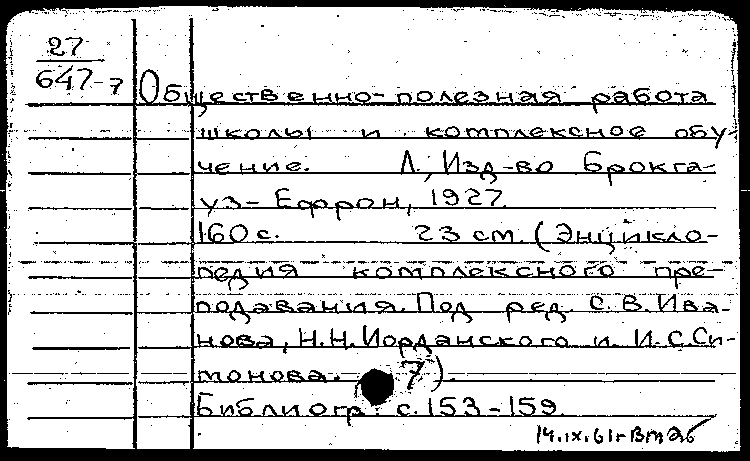 27
647-7
Общественно-полезная работа
школы и комплексное обу-
чение. Л., Изд-во Брокга-
уз-Ефрон, 1927.
160 с. 23 см. (Энцикло-
педия комплексного пре-
подавания. Под ред. С.В. Ива-
нова, Н.Н. Иорданского и И.С. Си-
монова. 7).
Библиогр. с. 153-159.
14.IX.61г